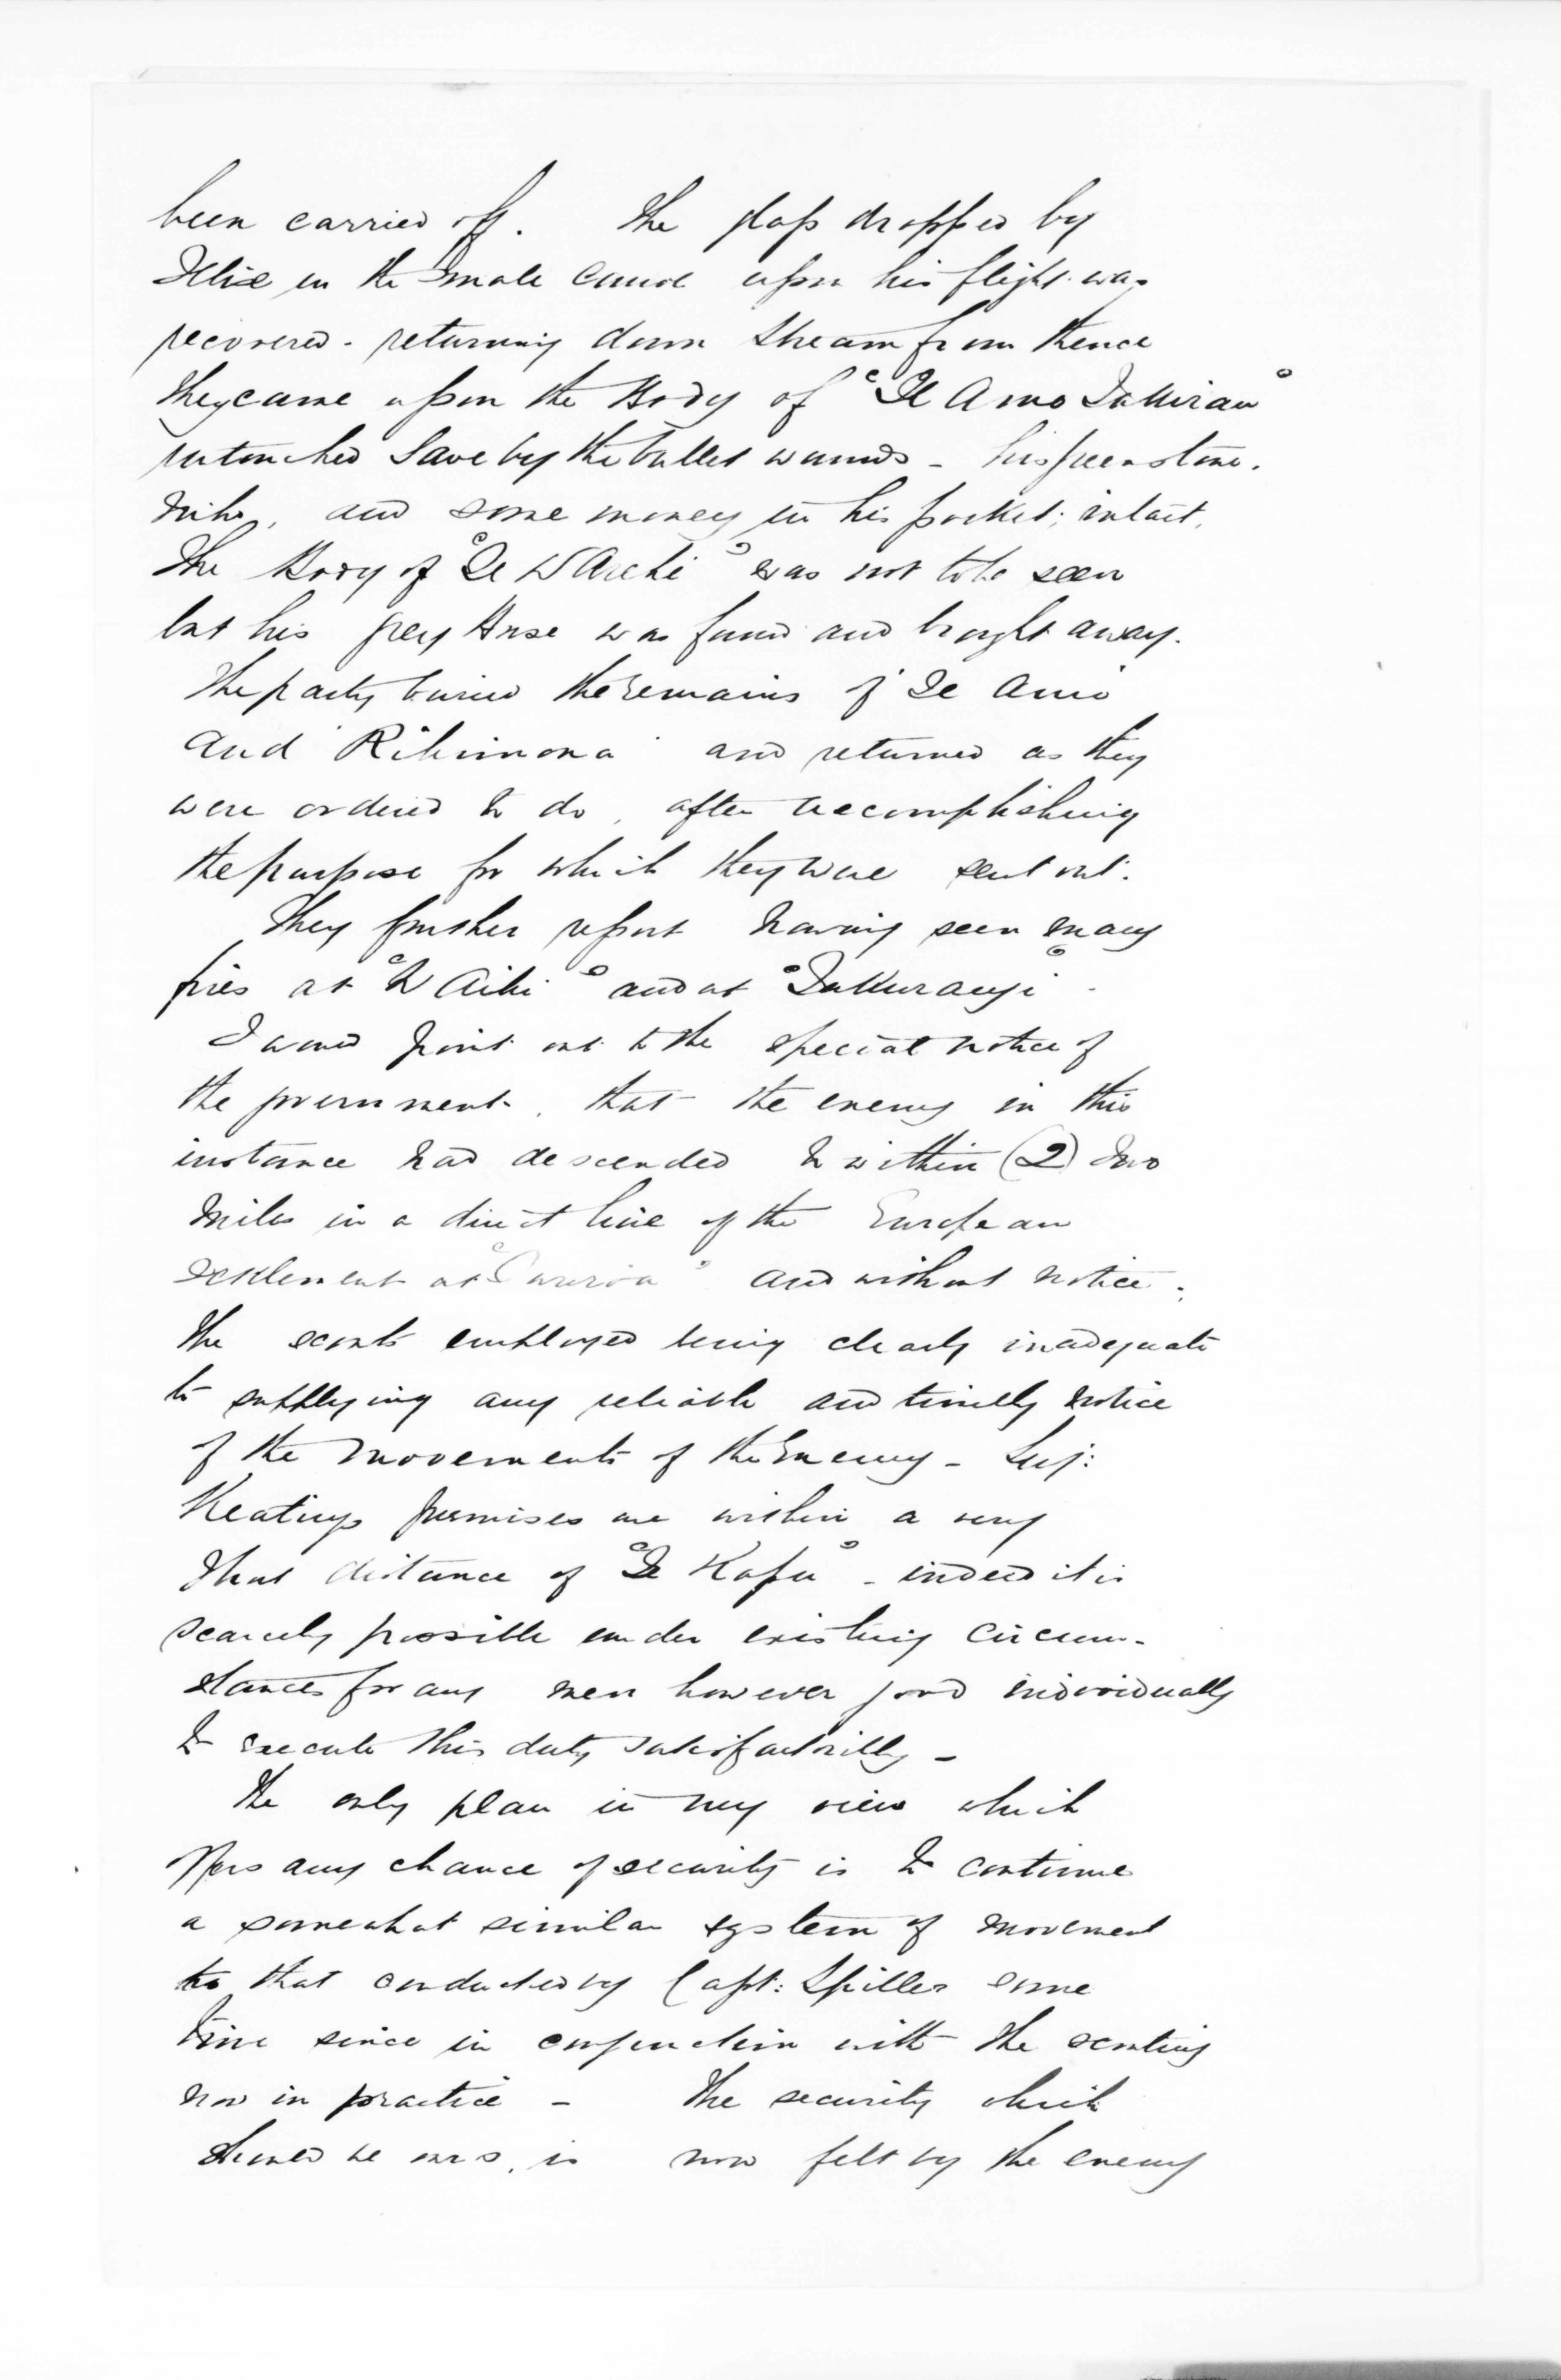 been carried off. The glass dropped by
in the small canoe upon his flight was
recovered - returning down stream from thence
they came upon the Body of "Te Amo
untouched save by the bullet wounds - his greenstone.
, and some money in his pocket, intact.
The Body of "Te Warihi" was not to be seen
but his grey Horse was found and brought away.
The party buried the remains of Te Amo
and "Rihimona" and returned as they
were ordered to do, after accomplishing
the purpose for which they were sent out.
They further report having seen many
fires at "Waihi" and at "Takurangi" -
I would point out to the special notice of
the government, that the enemy in this
instance had descended to within (2) two
miles in a direct line of the European
settlement at and without notice.
The scouts employed being clearly inadequate
to supplying any reliable and timelly notice
of the movements of the Enemy - Serj:
Keatings premises are within a very
short distance of "Te Kapu" - indeed it is
scarcely possible under existing circum-
stances for any men however good individually
to execute this duty satisfactorilly -
The only plan in my view which
offers any chance of security is to continue
a somewhat similar system of movement
to that conducted by Capt: Spiller some
time since in conjunction with the scouting
now in practice - The security which
should be ours, is now felt by the enemy